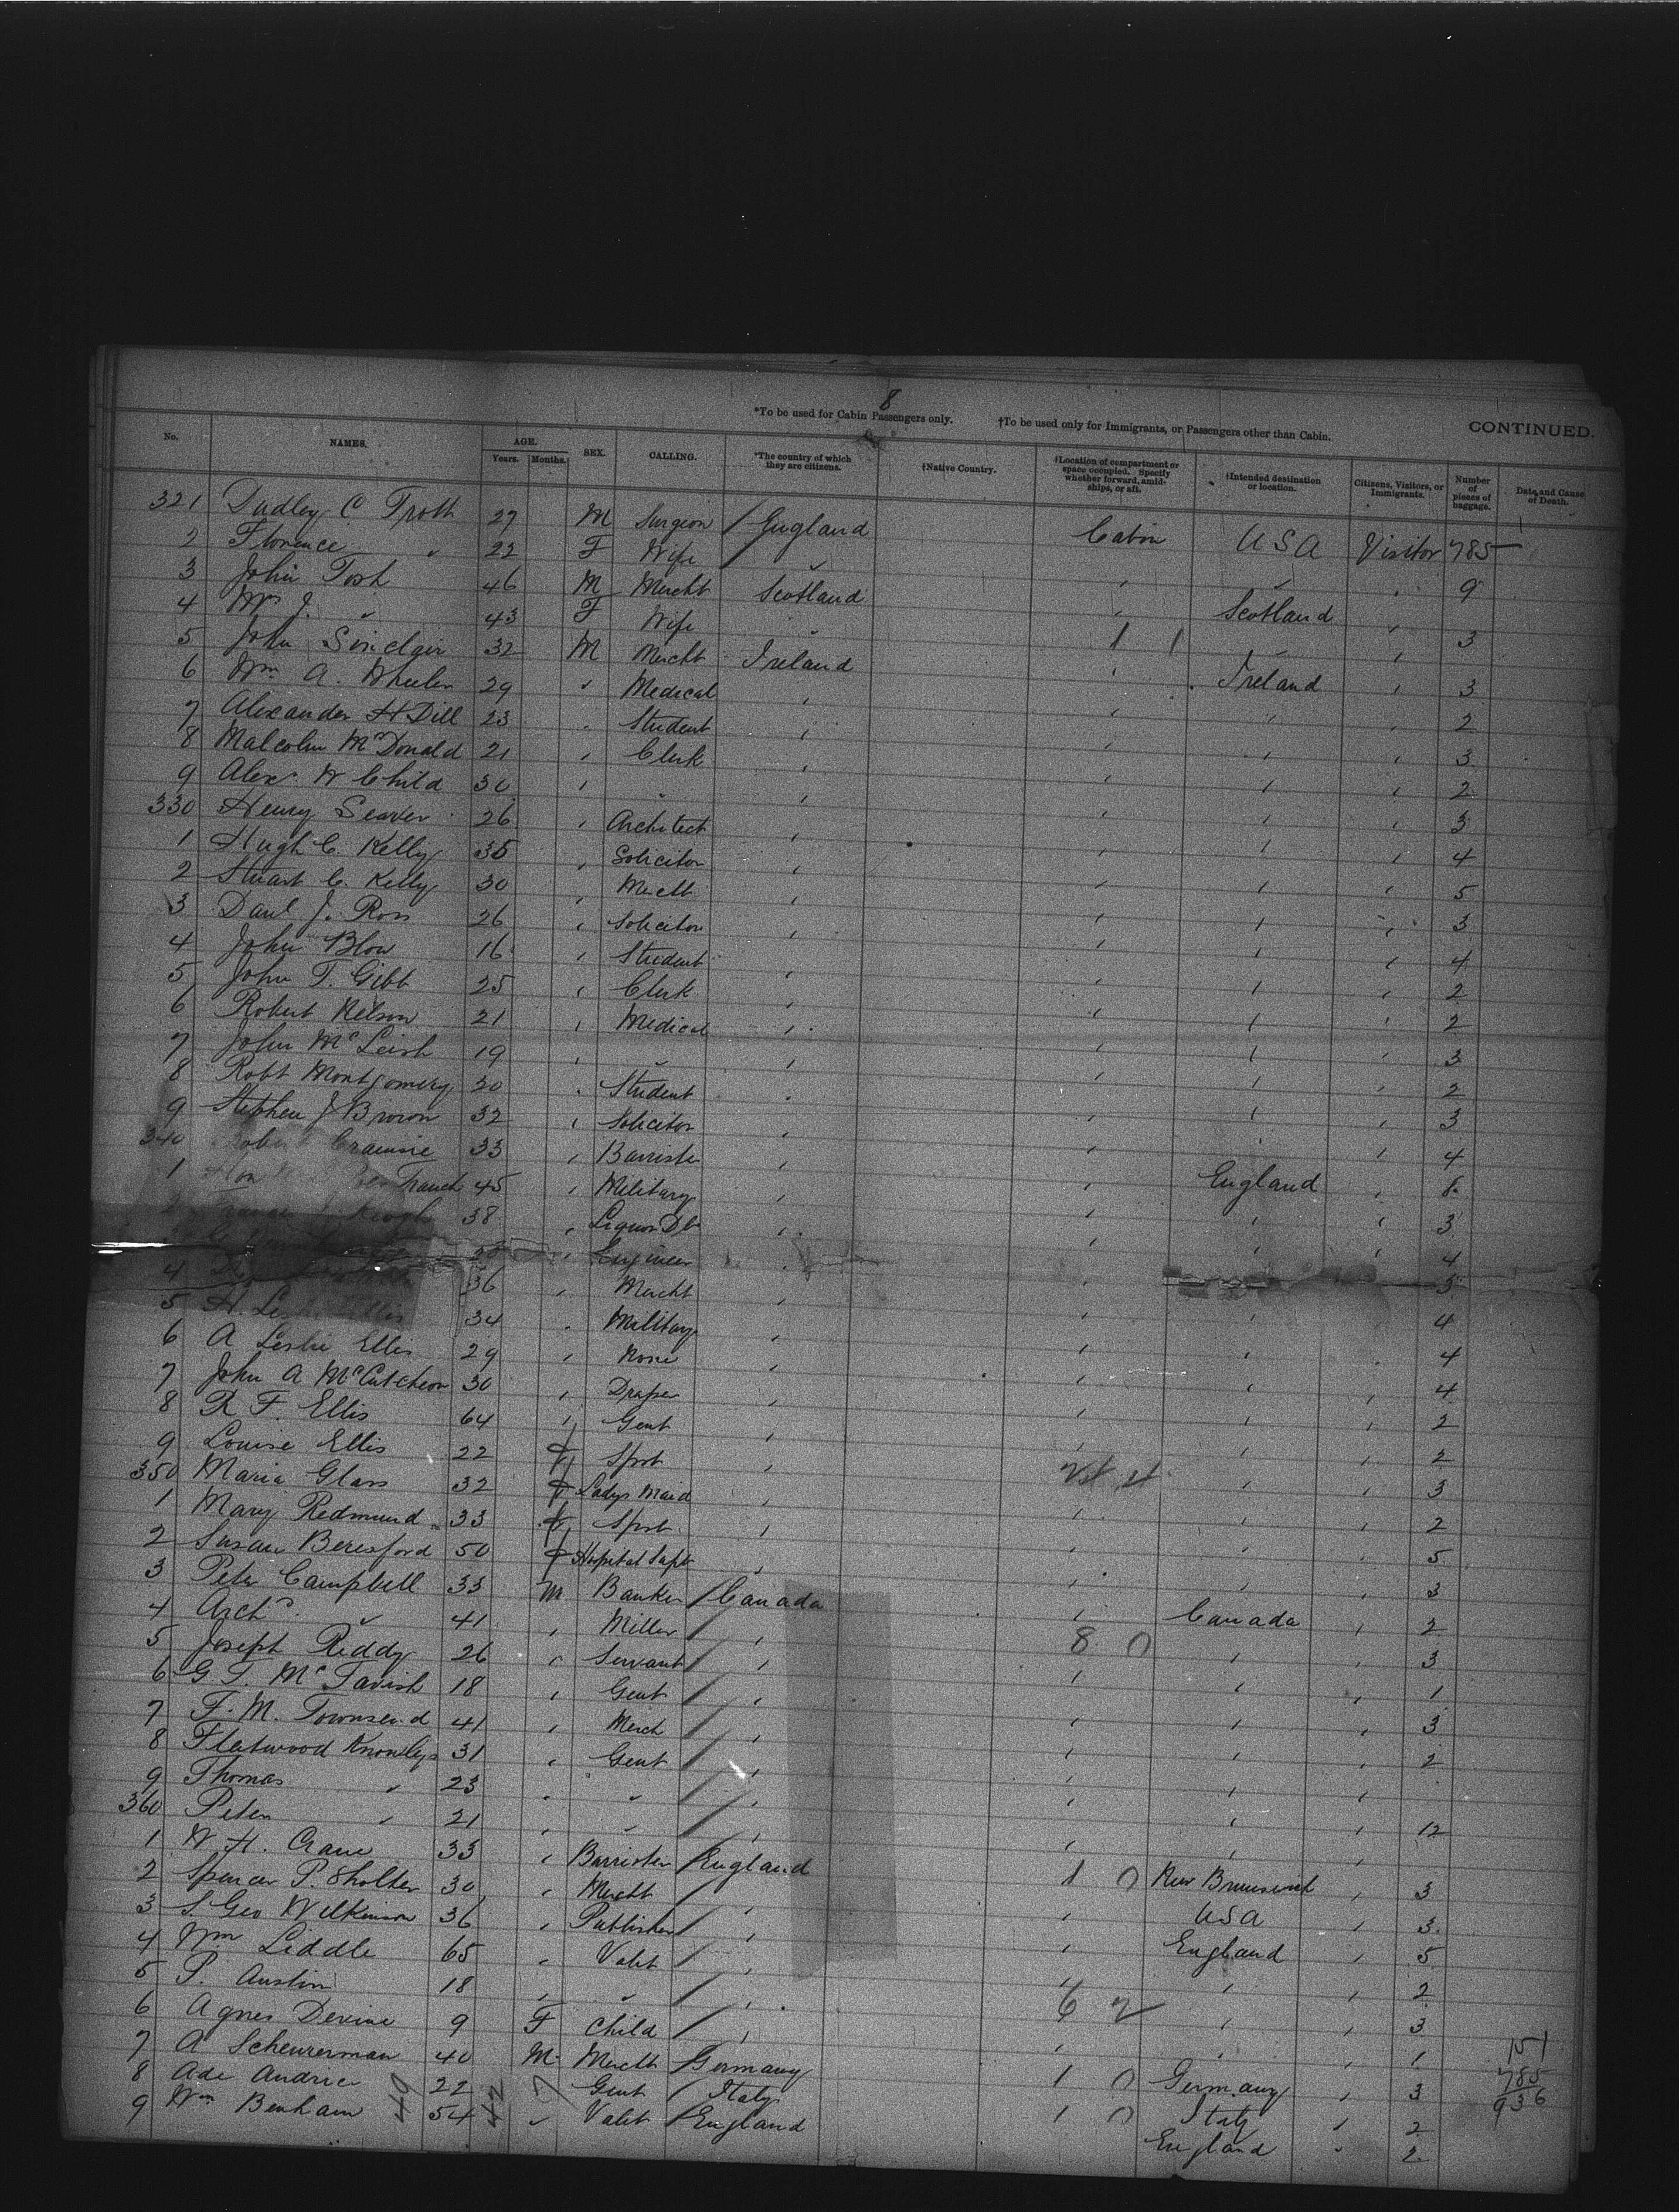 8
*To be used for Cabin Passengers only. †To be used only for Immigrants, or Passengers other than Cabin. CONTINUED.
No. NAMES. AGE. Years. Months. SEX. CALLING. *The country of which they are citizens. †Native Country. †Location of compartment or space occupied. Specify whether forward, amidships, or aft. †Intended destination or location. Citizens, Visitors, or Immigrants. Number of pieces of baggage. Date and Cause of Death.
321 Dudley C Troth 27 M Surgeon / England Cabin USA Visitor 785
2 Florence " 22 F Wife " ' " ' 9
3 John Tosh 46 M Mercht Scotland ' Scotland '
4 Mrs J. " 43 F Wife " 1 1 " ' 3
5 John Sinclair 32 M Mercht Ireland ' Ireland ' 3
6 Wm A. Wheeler 29 " Medical ' ' ' ' 2
7 Alexander H Dill 23 " Student ' ' ' ' 3
8 Malcolm McDonald 21 ' Clerk ' ' ' ' 2
9 Alexr W Child 30 ' " ' ' ' ' 3
330 Henry Seaver 26 ' Architect ' ' ' ' 4
1 Hugh C. Kelly 35 ' Solicitor ' ' ' ' 5
2 Stuart C. Kelly 30 ' Mercht ' ' ' ' 3
3 Danl J. Ross 26 ' Solicitor ' ' ' ' 4
4 John Blow 16 ' Student ' ' ' ' 2
5 John T. Gibb 25 ' Clerk ' ' ' ' 2
6 Robert Nelson 21 ' Medical ' ' ' ' 3
7 John McLeish 19 ' " ' ' ' ' 2
8 Robt Montgomery 20 ' Student ' ' ' ' 3
9 Stephen J Brown 32 ' Solicitor ' ' ' 4
340 33 ' Barrister ' ' England '
1 Trench 45 ' Military ' ' ' ' 3
2 Keogh 38 ' Liquor Dlr ' ' ' ' 4
' Engineer ' 5
4 36 ' Mercht ' ' ' 4
5 H. Ellis 34 ' Military ' ' ' 4
6 A Leslie Ellis 29 ' None ' ' ' ' 4
7 John A McCutcheon 30 ' Draper ' ' ' ' 2
8 R F. Ellis 64 ' Gent ' ' ' ' 2
9 Louise Ellis 22 F Spst ' ' ' 3
350 Maria Glass 32 F Ladys Maid ' ' ' ' 2
1 Mary Redmund 33 F Spst ' ' ' ' 5
2 Susan Beresford 50 F Hospital Supt ' ' ' ' 3
3 Peter Campbell 33 M Banker / Canada ' Canada ' 2
4 Archd. " 41 ' Miller / ' 8 0 ' ' 3
5 Joseph Reddy 26 ' Servant / ' ' ' ' 1
6 G. T. McTavish 18 ' Gent / ' ' ' ' 3
7 F. M. Townsend 41 ' Merch / ' ' ' ' 2
8 Fleetwood Knowlys 31 ' Gent / ' ' ' '
9 Thomas " 23 ' " / ' ' ' ' 12
360 Peter " 21 ' " / ' ' ' '
1 W. H. Crane 33 ' Barrister / England 1 0 New Brunswick ' 3
2 Spencer P. Sholter 30 ' Mercht / ' ' USA ' 3
3 S. Geo Wilkinson 36 ' Publisher / ' ' England ' 5
4 Wm Liddle 65 ' Valet / ' ' ' ' 2
5 P. Austin 18 ' " / ' 6 2 ' ' 3
6 Agnes Devine 9 F Child / ' ' ' ' 1 151
7 A Scheurerman 40 M Mercht / Germany 1 0 Germany ' 3 785
8 Ade Andrie 22 ' Gent / Italy 1 0 Italy ' 2 936
9 Wm Benham 54 " Valet / England England " 2
40 42 7